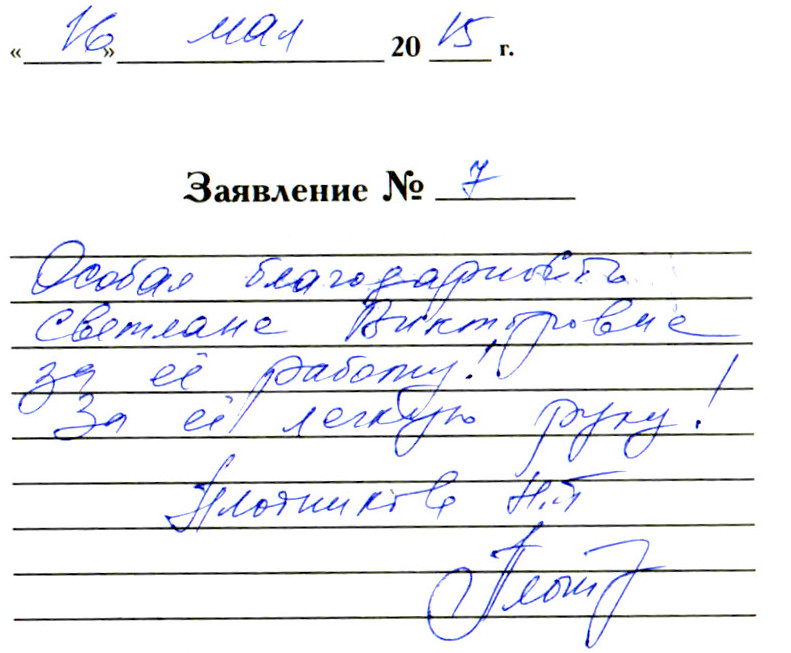 «16» мая 2015 г.
Заявление № 7
Особая благодарность
Светлане Викторовне
за её работу!
За её легкую руку!
Плотникова Н.П
Плот